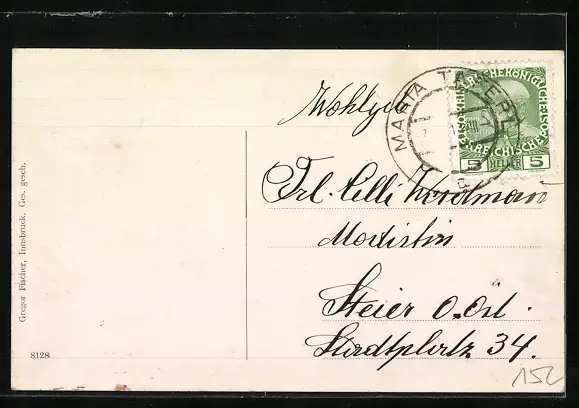 MARIA TAFERL
KAISERLICHE KÖNIGLICHE ÖSTERREICHISCHE POST
5 HELLER 5
Wohlgeb
Frl. Cilli Weidmann
Modistin
Steier O. Öst.
Stadtplatz 34.
Gregor Fischer, Innsbruck. Ges. gesch.
8128
152